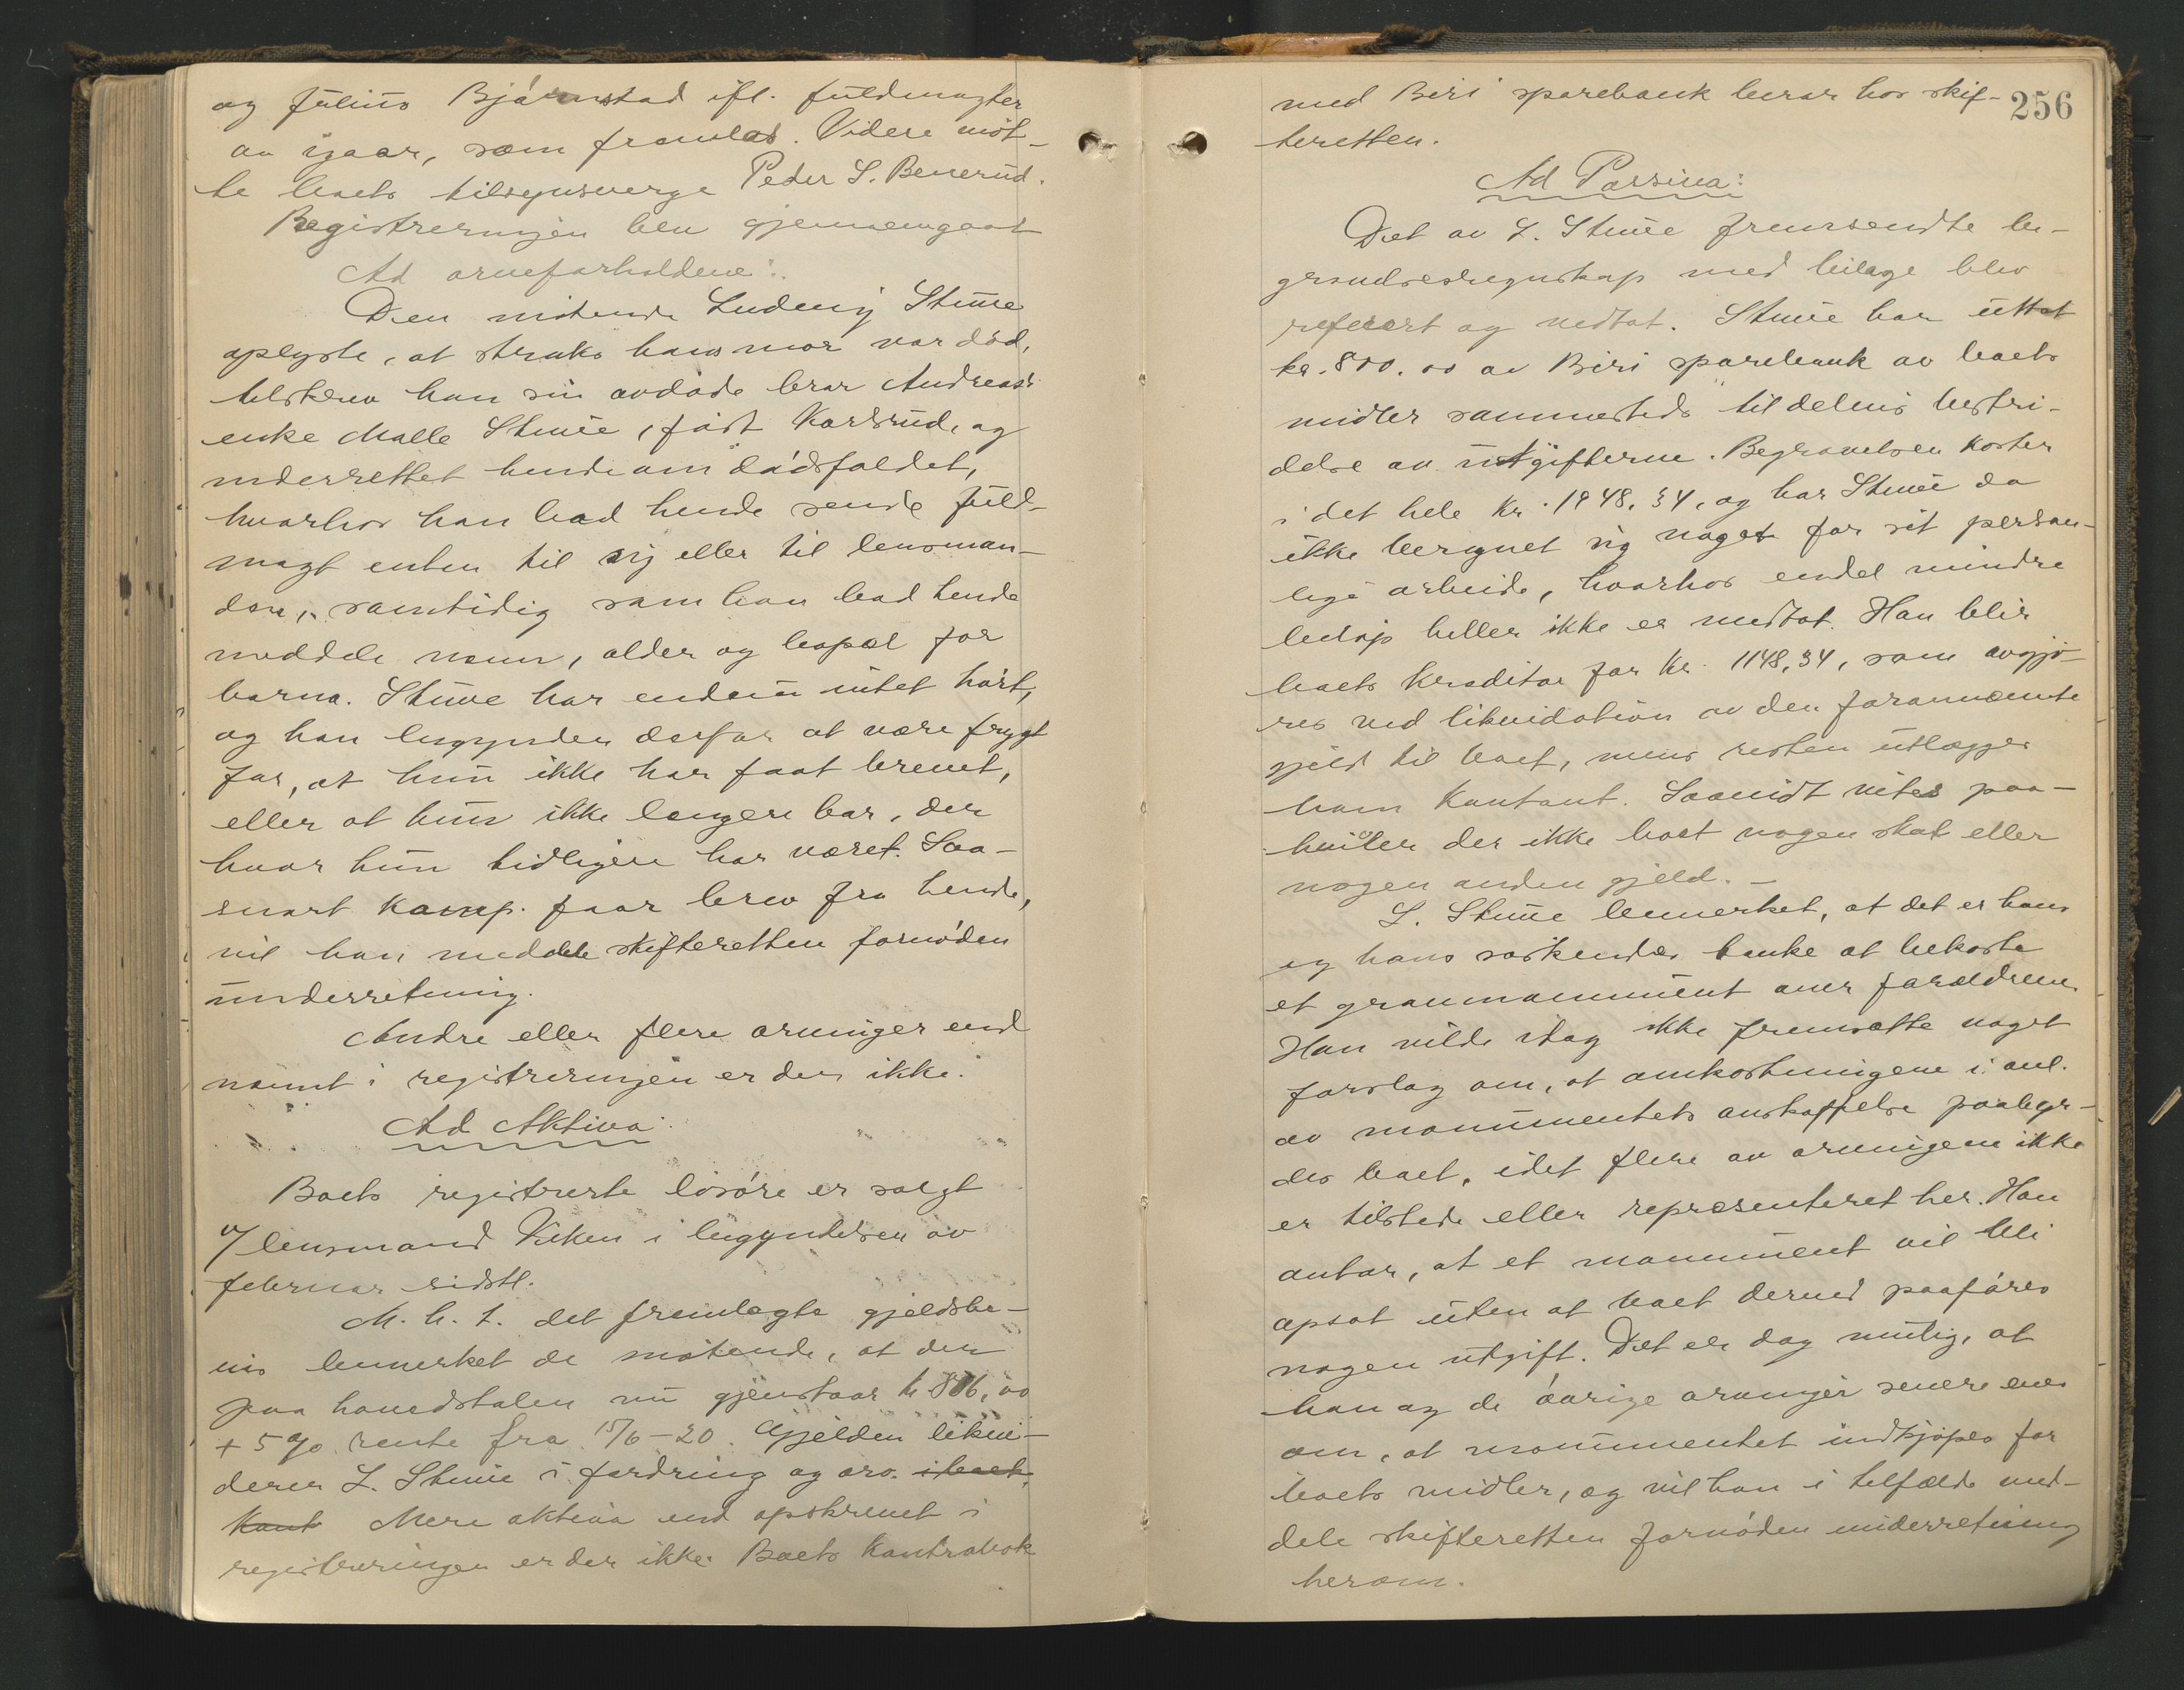 og Julius Bjørnstad ifl. fuldmagter
av igaar, som fremlas. Videre møt-
te boets tilsynsverge Peder S. Benerud.
Registreringen blev gjennemgaat
Ad arveforholdene:
Den møtende Ludvig Stuve
oplyste, at straks hans mor var død,
tilskrev han sin avdøde bror Andreas's
enke Malle Stuve, født Korsrud, og
underrettet hende om dødsfaldet,
hvorhos han bad hende sende fuld-
magt enten til sig eller til lensman-
den, samtidig som han bad hende
meddele navn, alder og bopæl for
barna. Stuve har endnu intet hørt,
og han begynder derfor at være frygt
for, at hun ikke har faat brevet,
eller at hun ikke længere bor, der
hvor hun tidligere har været. Saa-
snart komp. faar brev fra hende,
vil han meddele skifteretten fornøden
underretning.
Andre eller flere arvinger end
nævnt i registreringen er der ikke.
Ad Aktiva:
Boets registrerte løsøre er solgt
v/ lensmand Viken i begyndelsen av
februar sidstl.
M. h. t. det fremlagte gjeldsbe-
vis bemerket de møtende, at der
paa hovedstolen nu gjenstaar kr 806,00
+ 5 % rente fra 15/6-20. Gjelden likvi-
derer L. Stuve i fordring og arv. i boet.
Kont Mere aktiva end opskrevet i
registreringen er der ikke. Boets Kontrabok
256
med Biri sparebank beror hos skif-
teretten.
Ad Passiva:
Det av L. Stuve fremsendte be-
gravelsesregnskap med bilage blev
referert og vedtat. Stuve har uttat
kr. 800.00 av Biri sparebank av boets
midler sammesteds til delvis bestri-
delse av utgifterne. Begravelsen koster
i det hele kr. 1948,34, og har Stuve da
ikke beregnet sig noget for sit person-
lige arbeide, hvorhos endel mindre
beløp heller ikke er medtat. Han blir
boets kreditor for kr. 1148,34, som avgjø-
res ved likvidation av den forannævnte
gjeld til boet, mens resten utlægges
ham kontant. Saavidt vites paa-
hviler der ikke boet nogen skat eller
nogen anden gjeld. –
L. Stuve bemerket, at det er hans
og hans søskendes tanke at bekoste
et gravmonument over forældrene.
Han vilde idag ikke fremsætte noget
forslag om, at omkostningene i anl.
av monumentets anskaffelse paalegg-
des boet, idet flere av arvingene ikke
er tilstede eller repræsenteret her. Han
antar, at et monument vil bli
opsat uten at boet derved paaføres
nogen utgift. Det er dog mulig, at
han og de øvrige arvinger senere enes
om, at monumentet indkjøpes for
boets midler, og vil han i tilfælde med-
dele skifteretten fornøden underretning
herom.